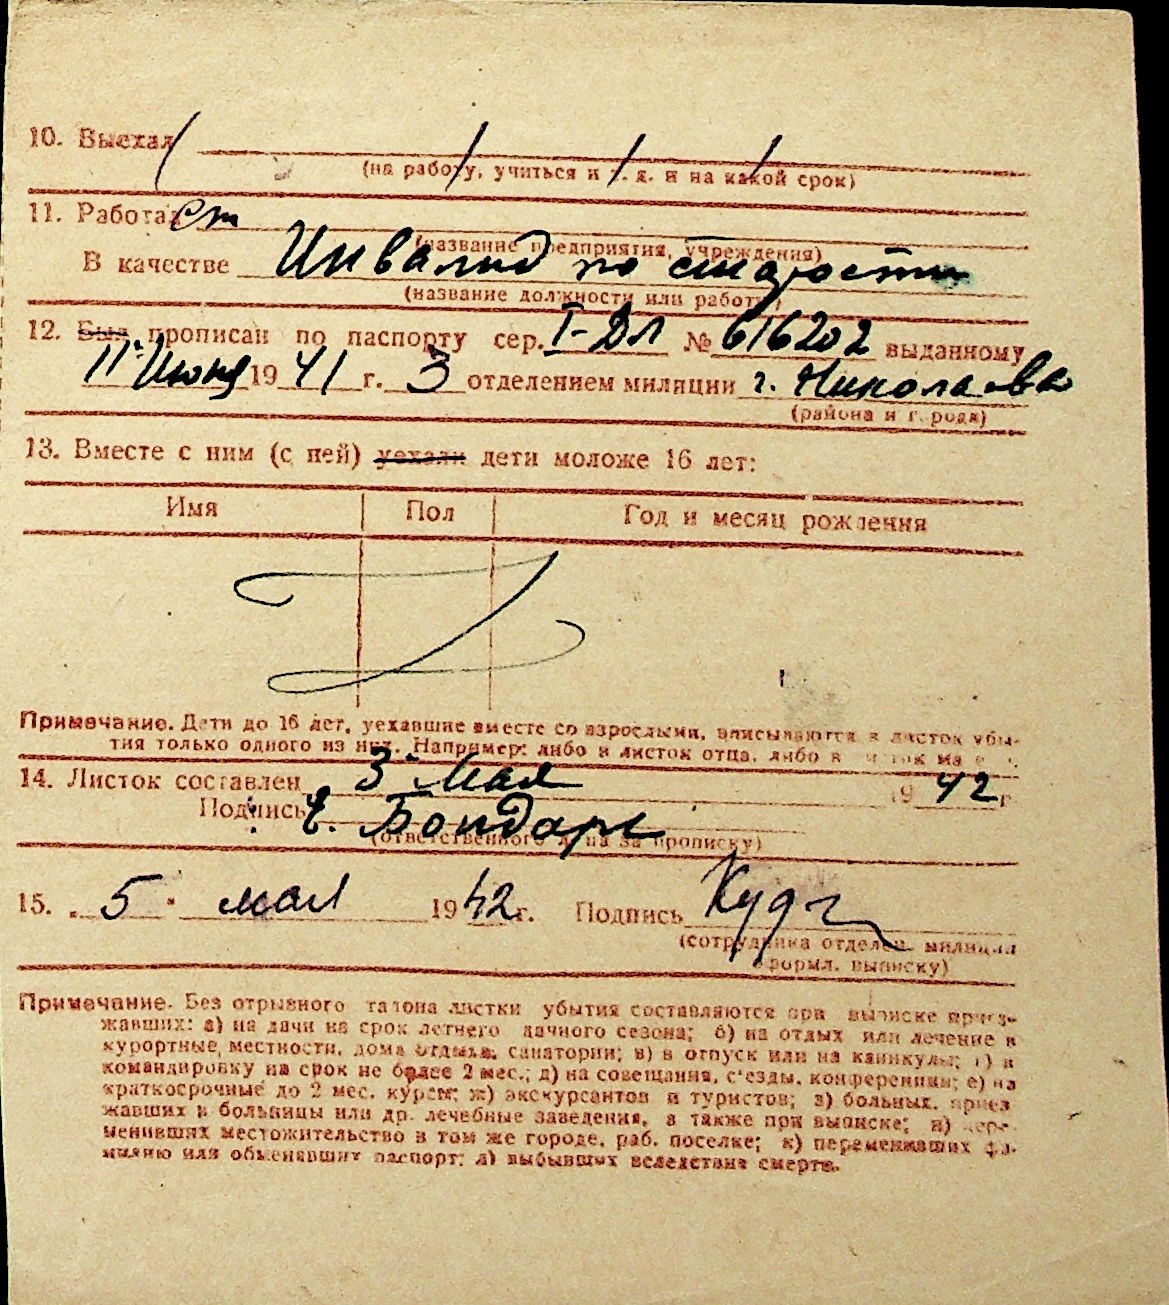 10. Выехал
(на работу, учиться и т. д. и на какой срок)
11. Работал
(название предприятия, учреждения)
В качестве Инвалид по старости
(название должности или работы)
12. Был прописан по паспорту сер. I-ДЛ № 616202 выданному
11 Июня 1941 г. 3 отделением милиции г. Николаева
(района и города)
13. Вместе с ним (с ней) уехали дети моложе 16 лет:
Имя Пол Год и месяц рождения
Примечание. Дети до 16 лет, уехавшие вместе со взрослыми, вписываются в листок убы-
тия только одного из них. Например: либо в листок отца, либо в
14. Листок составлен 3 Мая 1942 г.
Подпись Е. Бондарь
(ответственного лица за прописку)
15. „5" мая 1942 г. Подпись
(сотрудника отделен. милиции
оформл. выписку)
Примечание. Без отрывного талона листки убытия составляются при выписке приез-
жавших: а) на дачи на срок летнего дачного сезона; б) на отдых или лечение в
курортные, местности, дома отдыха, санатории; в) в отпуск или на каникулы; г) в
командировку на срок не более 2 мес.; д) на совещания, с'езды, конференции; е) на
краткосрочные до 2 мес. курсы; ж) экскурсантов и туристов; з) больных, приез
жавших в больницы или др. лечебные заведения, а также при выписке; и) пере-
менивших местожительство в том же городе, раб. поселке; к) переменивших фа-
милию или обменявших паспорт; л) выбывших вследствие смерти.